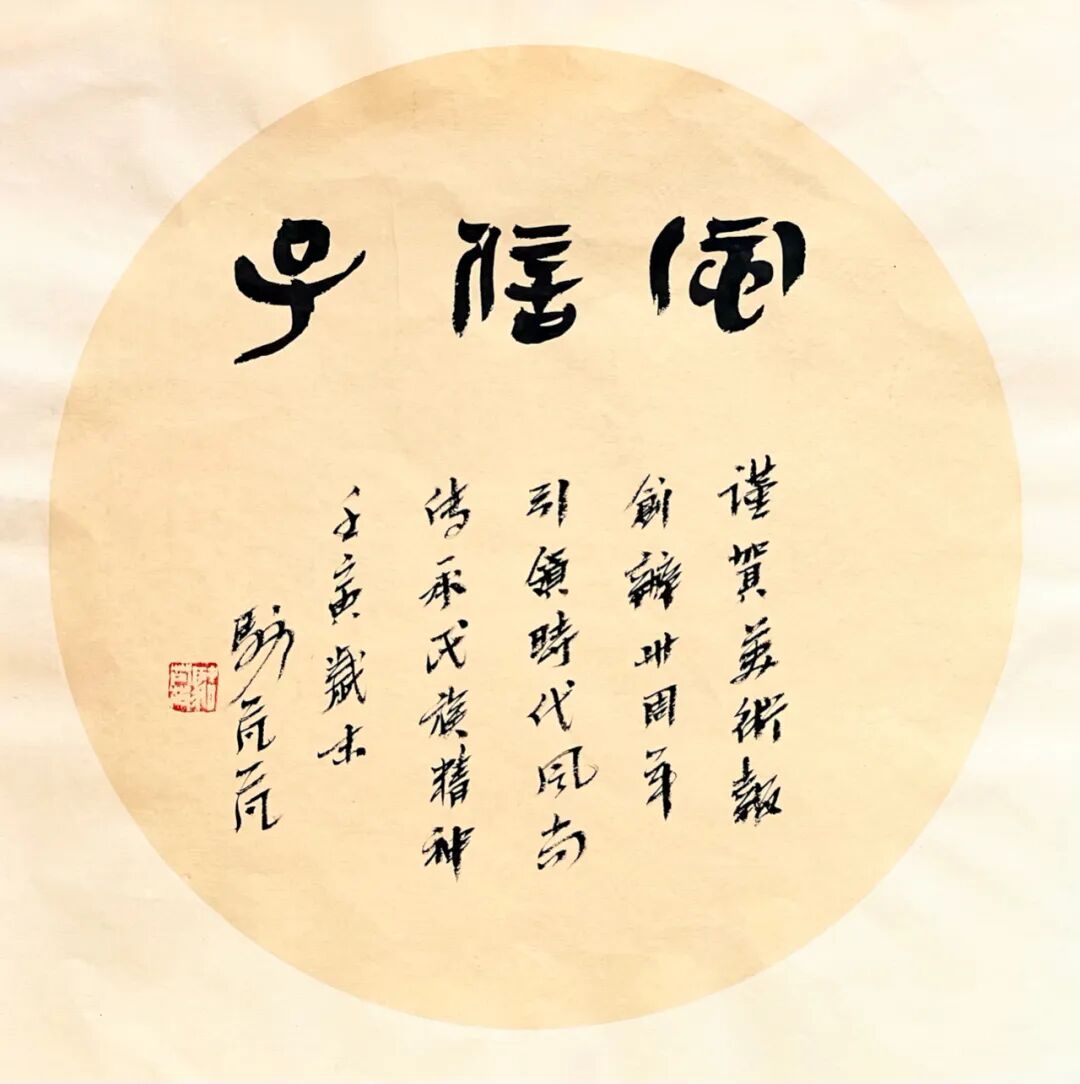 風信子
謹賀美術報
創辦卅周年
引領時代风尚
傳承民族精神
壬寅歲末
駱芃芃